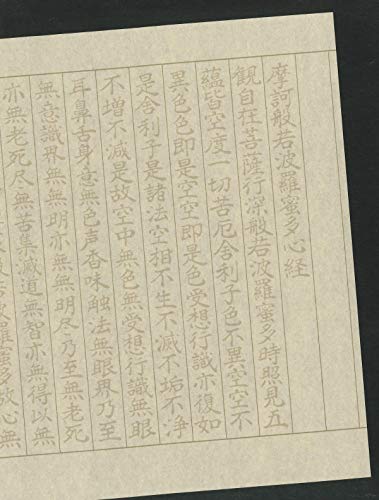 摩訶般若波羅蜜多心経
観自在菩薩行深般若波羅蜜多時照見五
蘊皆空度一切苦厄舎利子色不異空空不
異色色即是空空即是色受想行識亦復如
是舎利子是諸法空相不生不滅不垢不浄
不増不減是故空中無色無受想行識無眼
耳鼻舌身意無色声香味触法無眼界乃至
無意識界無無明亦無無明尽乃至無老死
亦無老死尽無苦集滅道無智亦無得以無
羅蜜多故心無